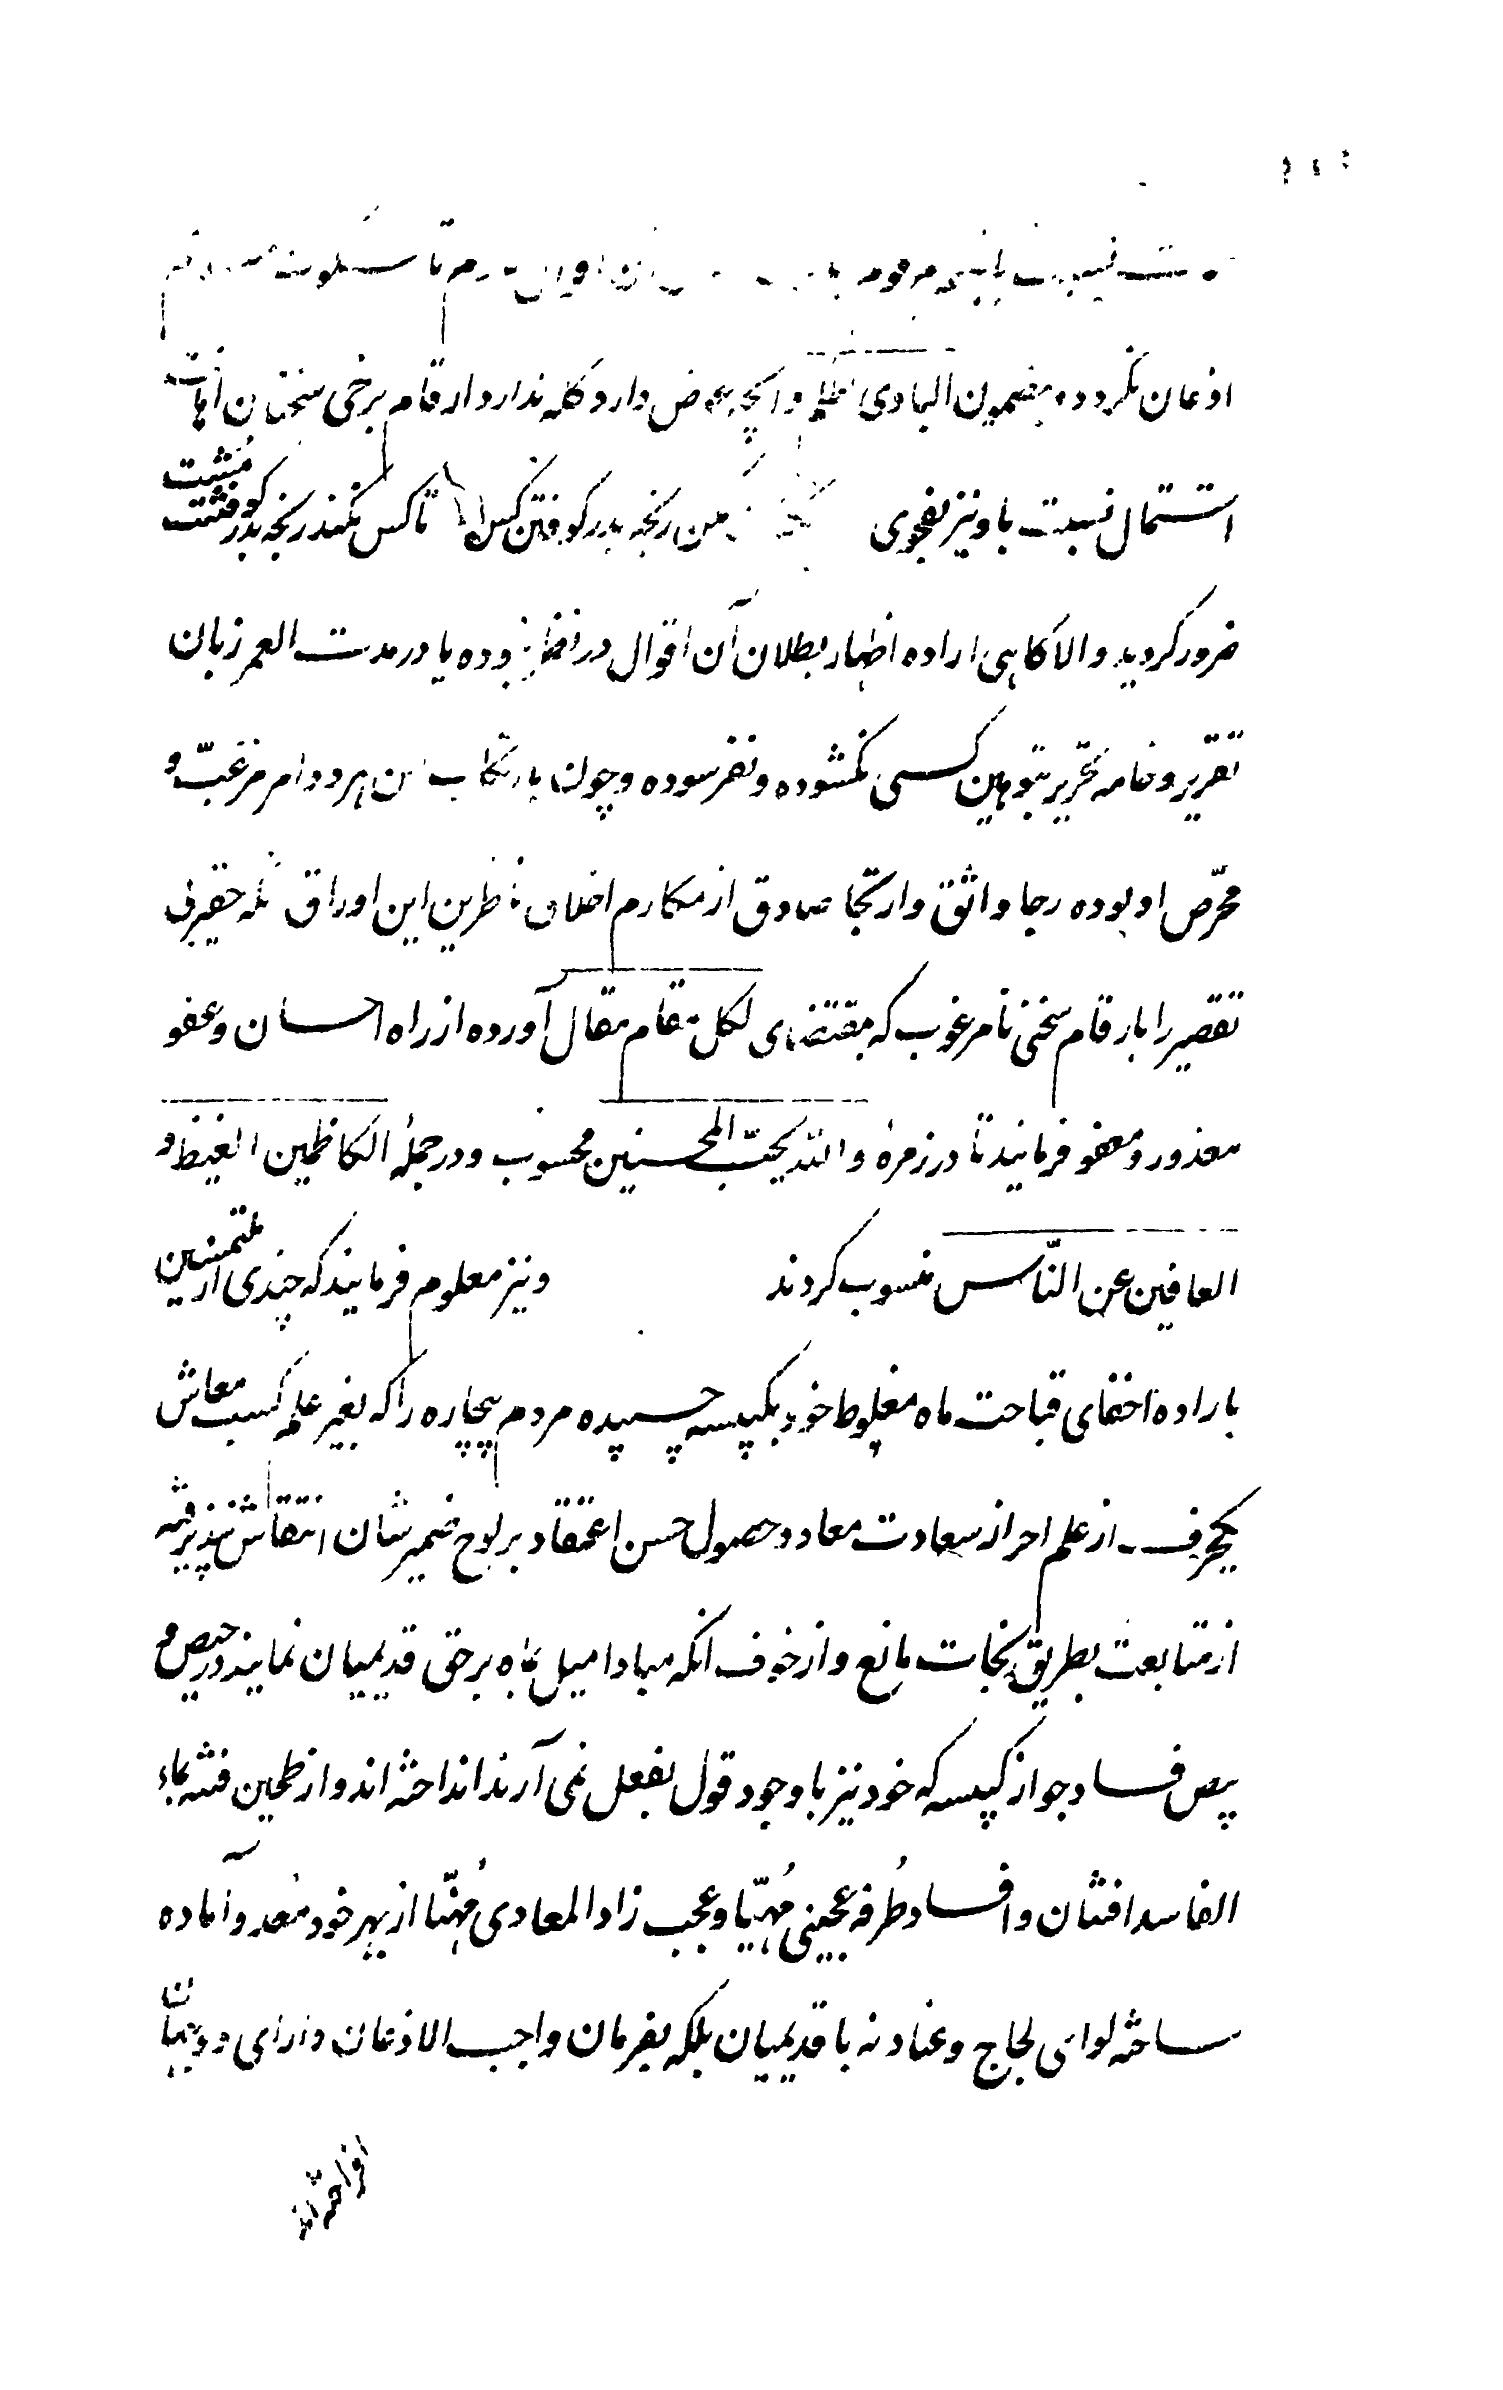 نسبت بانیمه مرقومه تا
اذعان نکرده و بمضمون البادی اظلم و آنچه عوض دارد گله ندارد ارقام برخی سخنان اهانت
اشتمال نسبت باو و نیز بفحوی مکن رنجه بدر کوفتن کس را تا کس نکند رنجه بدر کوفتنت مشت
ضرور گردید والا گاهی اراده اظهار بطلان آن اقوال در نظر نبوده یا در مدت العمر زبان
تقریر و خامه تحریر بتوهین کسی نگشوده و نفرسوده و چون بارتکاب این هر دو امر مرغّب و
محرّص او بوده رجا واثق و ارتجا صادق از مکارم اخلاق ناظرین این اوراق که حقیر بی
تقصیر را بارقام سخنی نامرغوب که بمقتضای لکل مقام مقال آورده از راه احسان و عفو
معذور و معفو فرمایند تا در زمرهٔ والله یحبّ المحسنین محسوب و در جملهٔ الکاظمین الغیظ و
العافین عن النّاس منسوب کردند و نیز معلوم فرمایند که چندی از ملتمسین
باراده اخفای قباحت ماه مغلوط خود بکبیسه چسپیده مردم بیچاره را که بغیر علم کسب معاش
یکحرف از علم احراز سعادت معاد و حصول حسن اعتقاد بر لوح ضمیر شان انتقاش نپذیرفته
از متابعت بطریق نجات مانع و از خوف آنکه مبادا میل بماه برحق قدیمیان نمایند در حیص و
بیص فساد جواز کبیسه که خود نیز با وجود قول بفعل نمی آرند انداخته اند و از طحین فتنه بماء
الفاسد افتنان و افساد طُرفه عجینی مُهیّا و عجب زاد المعادی مُهنّا از بهر خود معد و آماده
ساخته لوای لجاج و عناد نه با قدیمیان بلکه بفرمان واجب الاذعان دارای دو جهان
افراخته اند